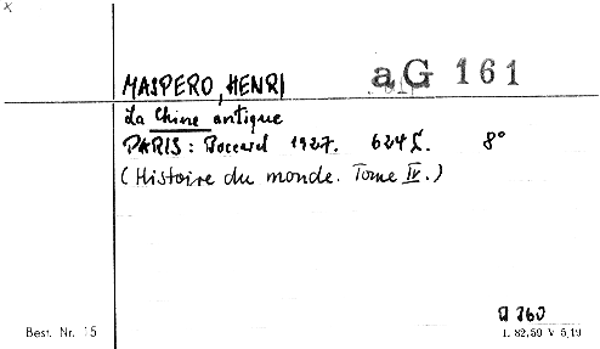 x
MASPERO, HENRI aG 161
La Chine antique
PARIS: Boccard 1927. 624 S. 8°
(Histoire du monde. Tome IV.)
Best. Nr. 15
1. 82.50 V 5.10